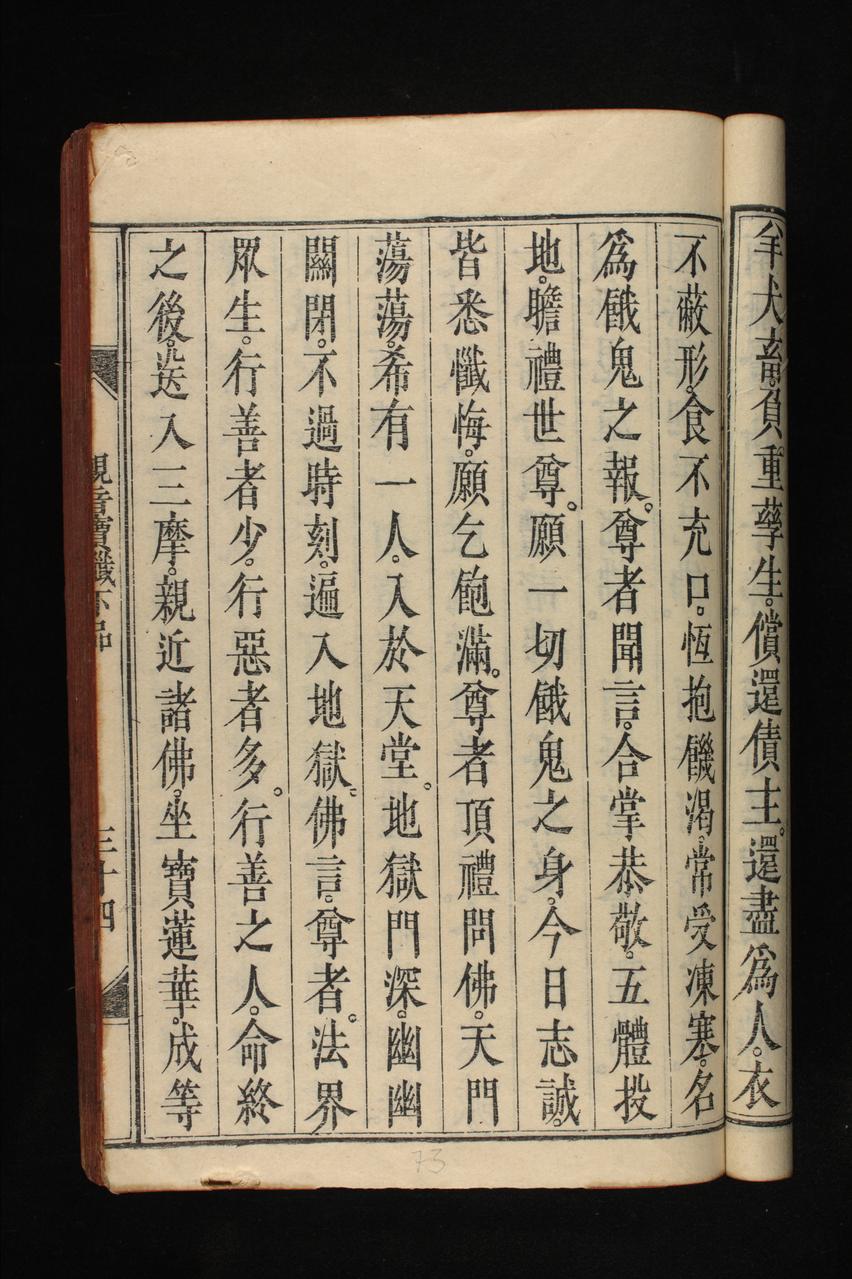 羊犬畜。負重孽生。償還債主。還盡爲人。衣
不蔽形。食不充口。恆抱饑渴。常受凍塞。名
爲餓鬼之報。尊者聞言。合掌恭敬。五體投
地。瞻禮世尊。願一切餓鬼之身。今日志誠。
皆悉懺悔。願乞飽滿。尊者頂禮問佛。天門
蕩蕩。希有一人。入於天堂。地獄門深。幽幽
關閉。不過時刻。遍入地獄。佛言。尊者。法界
眾生。行善者少。行惡者多。行善之人。命終
之後。送入三摩。親近諸佛。坐寶蓮華。成等
觀音寶懺下品
三十四
73